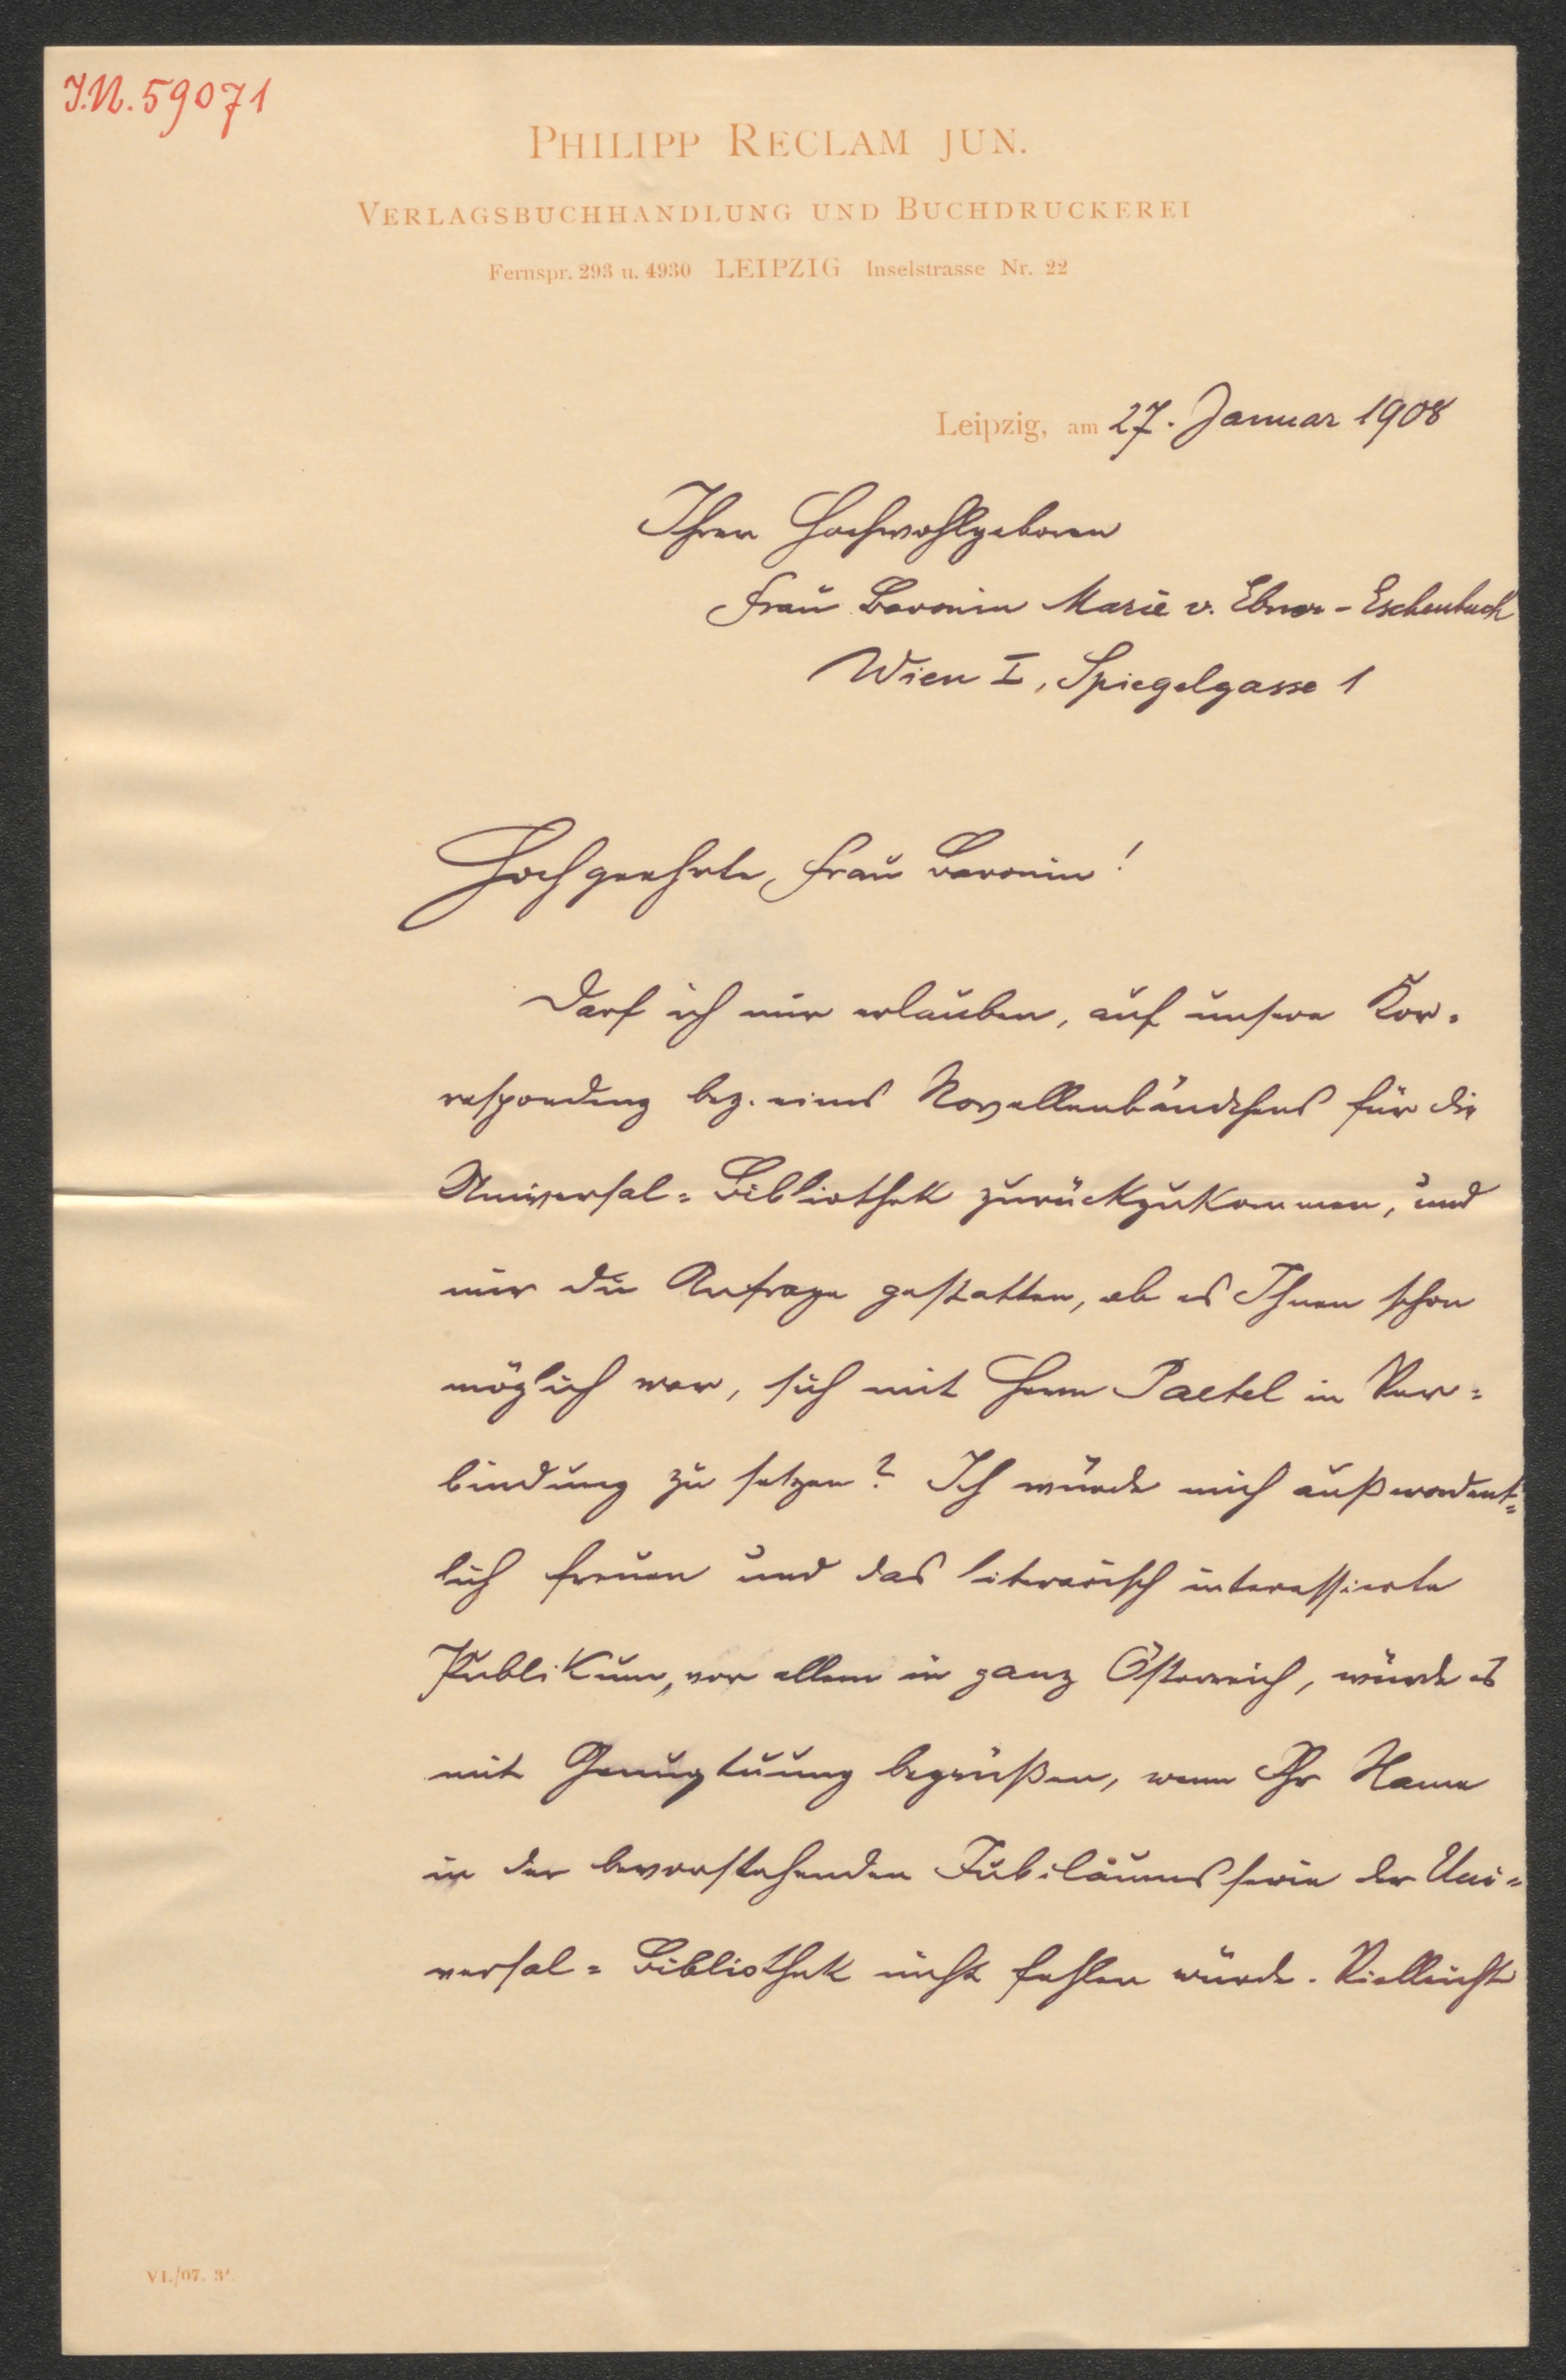 J.N. 59071
PHILIPP RECLAM JUN.
VERLAGSBUCHHANDLUNG UND BUCHDRUCKEREI
Fernspr. 293 u. 4930 LEIPZIG Inselstrasse Nr. 22
Leipzig, am 27. Januar 1908
Ihrer Hochwohlgeboren
Frau Baronin Marie v. Ebner-Eschenbach
Wien I, Spiegelgasse 1
Hochgeehrte Frau Baronin!
Darf ich mir erlauben, auf unsere Kor=
respondenz bez. eines Novellenbändchens für die
Universal=Bibliothek zurückzukommen, und
mir die Anfrage gestatten, ob es Ihnen schon
möglich war, sich mit Herrn Paetel in Ver=
bindung zu setzen? Ich würde mich außerordent=
lich freuen und das literarisch interessierte
Publikum, vor allem in ganz Österreich, würde es
mit Genugtuung begrüßen, wenn Ihr Name
in der bevorstehenden Jubiläumsserie der Uni=
versal=Bibliothek nicht fehlen würde. Vielleicht
VI./07. 3'.